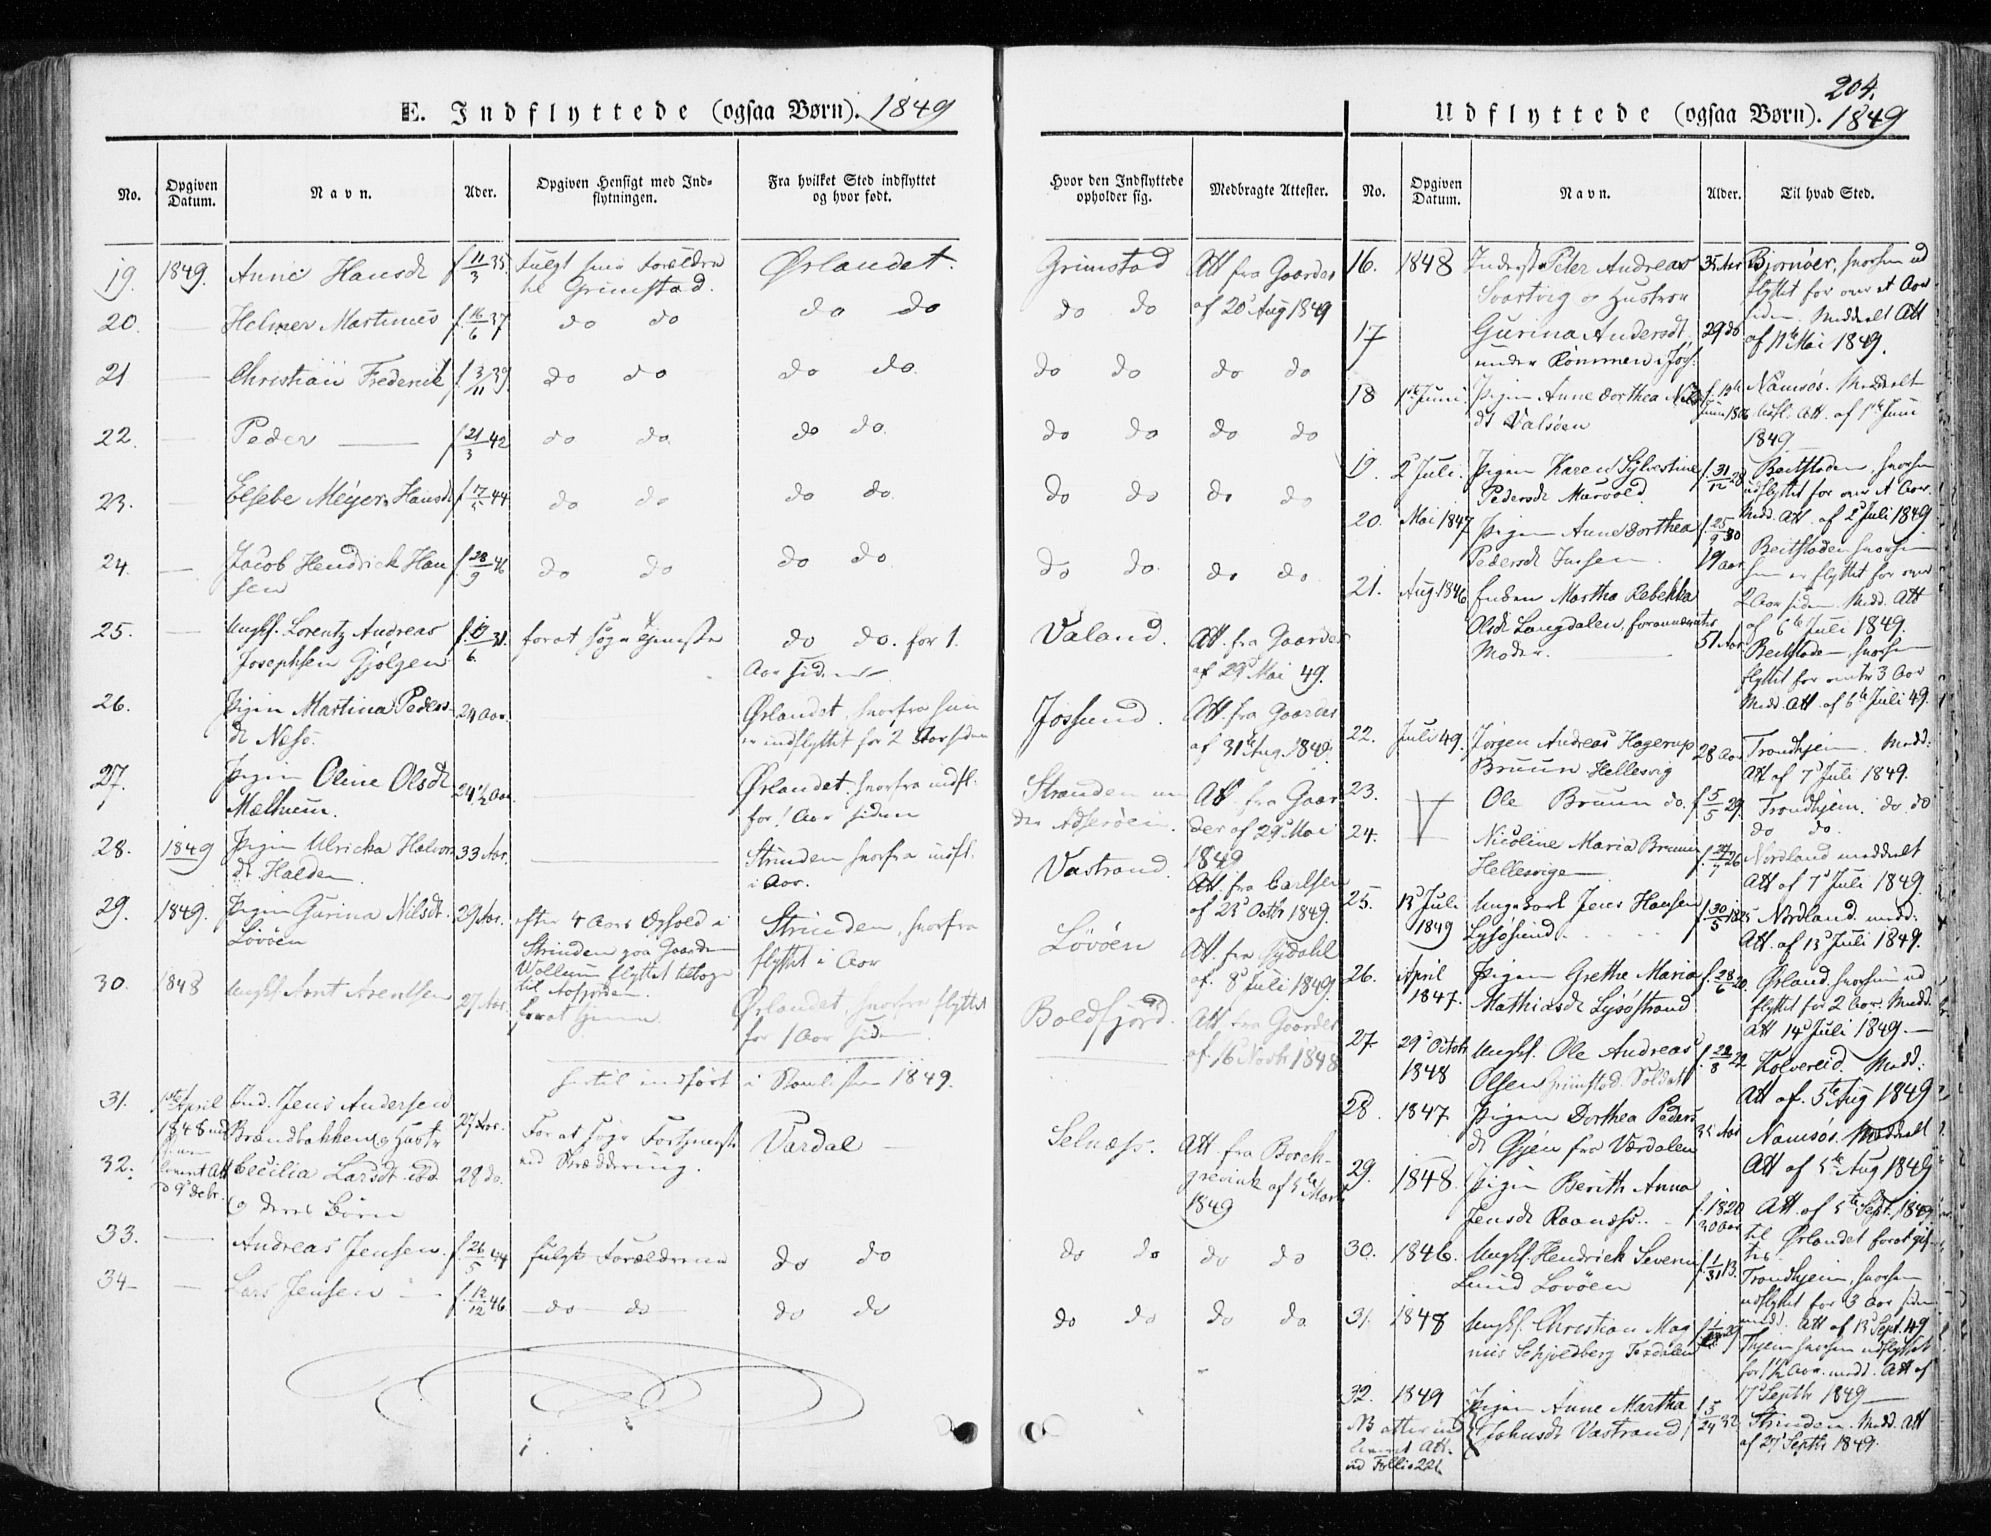 E. Indflyttede (ogsaa Børn). 1849
No. Opgiven Datum. Navn. Ader. Opgiven Hensigt med Indflytningen. Fra hvilket Sted indflyttet og hvor født.
19. 1849. Anne Hansdt f. 11/3 35. fulgt sine Forældre Ørlandet.
til Grimstad.
20. — Helmer Martinus f. 16/6 37 do do do do
21 — Christian Frederik f. 3/11 39. do do do do.
22. — Peder — f. 21/3 42 do do do do.
23. — Elsebe Meyer Hansdt do do do do.
24. — Jacob Hendrick Han f. 28/9 46 do do do do
sen
25. — Ungkl. Lorentz Andreas forat søge Tjeneste do do. for 1.
Josephsen Gjølgen Aar siden
26. Pigen Martina Peders 24 Aar. — Ørlandet, hvorfra hun
dt Næss. er indflyttet for 2 Aar siden
27. Pigen Oline Olsdt 24½ Aar. — Ørlandet. hvorfra indfl.
Mælhuun. for 1 Aar siden
28. 1849 Pigen Ulricka Halvors 33 Aar. — Strinden hvorfra indfl.
dt Halden. i Aar.
29. 1849. Pigen Gurina Nilsdt. 29 Aar. efter 4 Aars Ophold i Strinden, hvorfra
Lövöen Strinden paa Gaarden flyttet i Aar
Wollum flyttet tilbage
til Aafjorden.
30. 1848 Ungkl. Arnt Arentsen 27 Aar. forat tjene. Ørlandet, hvorfra flyttet
for 1 Aar siden.
hertil indført i 1849.
31. 1ste April Ind. Jens Andersen 27 Aar. For at søge Vardal —
1848 Brandbakken og Hustr ved Skræddering.
32. Cecilia Larsdt ibd. 28 do.
og deres Börn
33. — Andreas Jensen. f. 26/5 44 fulgt Forældrene do do
34 — — Lars Jensen — f. 12/12 46. — do — do — do do
204.
Udflyttede (ogsaa Børn). 1849
Hvor den Indflyttede opholder sig. Medbragte Attester. No. Opgiven Datum. Navn. Alder. Til hvad Sted.
Grimstad Att fra Gaarder
do do af 20 Aug 1849
do do do do
do do do do
do do do do
do do do do
Valand. Att. fra Gaarder
af 29 Mai 49.
Jössund. Att. fra Gaarder
af 31te Aug. 1849.
Stranden un Att. fra Gaar
der der af 29 Mai
1849
Vastrand. Att. fra Carlsen
af 23 Octbr 1849.
Lövöen Att. fra Gydahl
af 8 Juli 1849.
Boldfjord. Att. fra Gaarder
af 16 Novbr 1848
Selnæss. Att fra Borch
grevink af 5te Marts
1849
do do do do
do do do do
16. 1848 Inderst Peter Andreas 35 Aar Bjørnöer, hvorhen ud
Svartvig og Hustrue flyttet for over et Aar
siden. Meddelt Att
17 Gurina Andersdt. 29 do af 11te Mai 1849.
under
18 1ste Juni. Pigen Anne Dorthea Nils Namsös. Meddelt
dt Valsöen Att. af 1ste Juni
1849
19. 2 Juli. Pigen Karen Sylvestine f. 31/12 28 Beitstaden, hvorhen
Pedersdt udflyttet for over et Aar.
Medd. Att. af 2 Juli 1849
20. Mai 1847 Pigen Anne Dorthea f. 25/9 30 Beitstaden hvorhen
Pedersdt 19 Aar hun er flyttet for over
2 Aar siden. Medd. Att
af 6te Juli 1849.
21. Aug 1846 Enken Martha Rebekka
Olsdt Langdalen, forannævntes 51 Aar. Beitstaden, hvorhen
Moder. — flyttet for omtr 3 Aar
Medd. Att. af 6te Juli 49.
22. Juli 49. Jörgen Andreas Hagerup 28 Aar Trondhjem. Medd:
Bruun Hellesvig Att af 7 Juli 1849.
23. Ole Bruun do. f. 5/5 29. Trondhjem. do do
do do.
24. Nicoline Maria Bruun Nordland meddelt
Hellesvig Att af 7 Juli 1849.
25. 13 Juli Ungkarl Jens Hansen Nordland. medd:
1849 Lysösund. Att. af 13 Juli 1849.
26. April Pigen Grethe Maria f. 28/6 20. Ørland hvorhen ud
1847. Mathiasdt Lysöstrand flyttet for 2 Aar. Medd.
Att 14 Juli 1849. —
27. 29 Octobr Ungkl. Ole Andreas f. 28/8 22 Kolvereid. Medd:
1848 Olsen Grimstad Soldat Att af. 5te Aug 1849
28. 1847. Pigen Dorthea Peders Namsös. Meddelt
dt fra Værdalen Att af 5te Aug 1849
29. 1848. Pigen Berith Anna f. 1820 Att. af 5te Sept. 1849
Jensdt Raanæss. 30 Aar til Ørlandet forat gif
tes.
30. 1846. Ungkl. Hendrick Severin f. 1/31 13. Trondhjem, hvorhen
Lund Lövöen udflyttet for 3 Aar siden
medd. Att af 13 Sept. 49
31. 1848 Ungkl. Christian Mag Thjem hvorhen udflyttet
nus Schjoldberg Texdalen for 1½ Aar. medd. Att af
17 Septbr 1849 —
32. 1849 Pigen Anne Martha f. 5/24 32 Strinden. Medd. Att
NB atter ind Johnsdt Vastrand af 27 Septbr 1849.
Att.
Follio 221